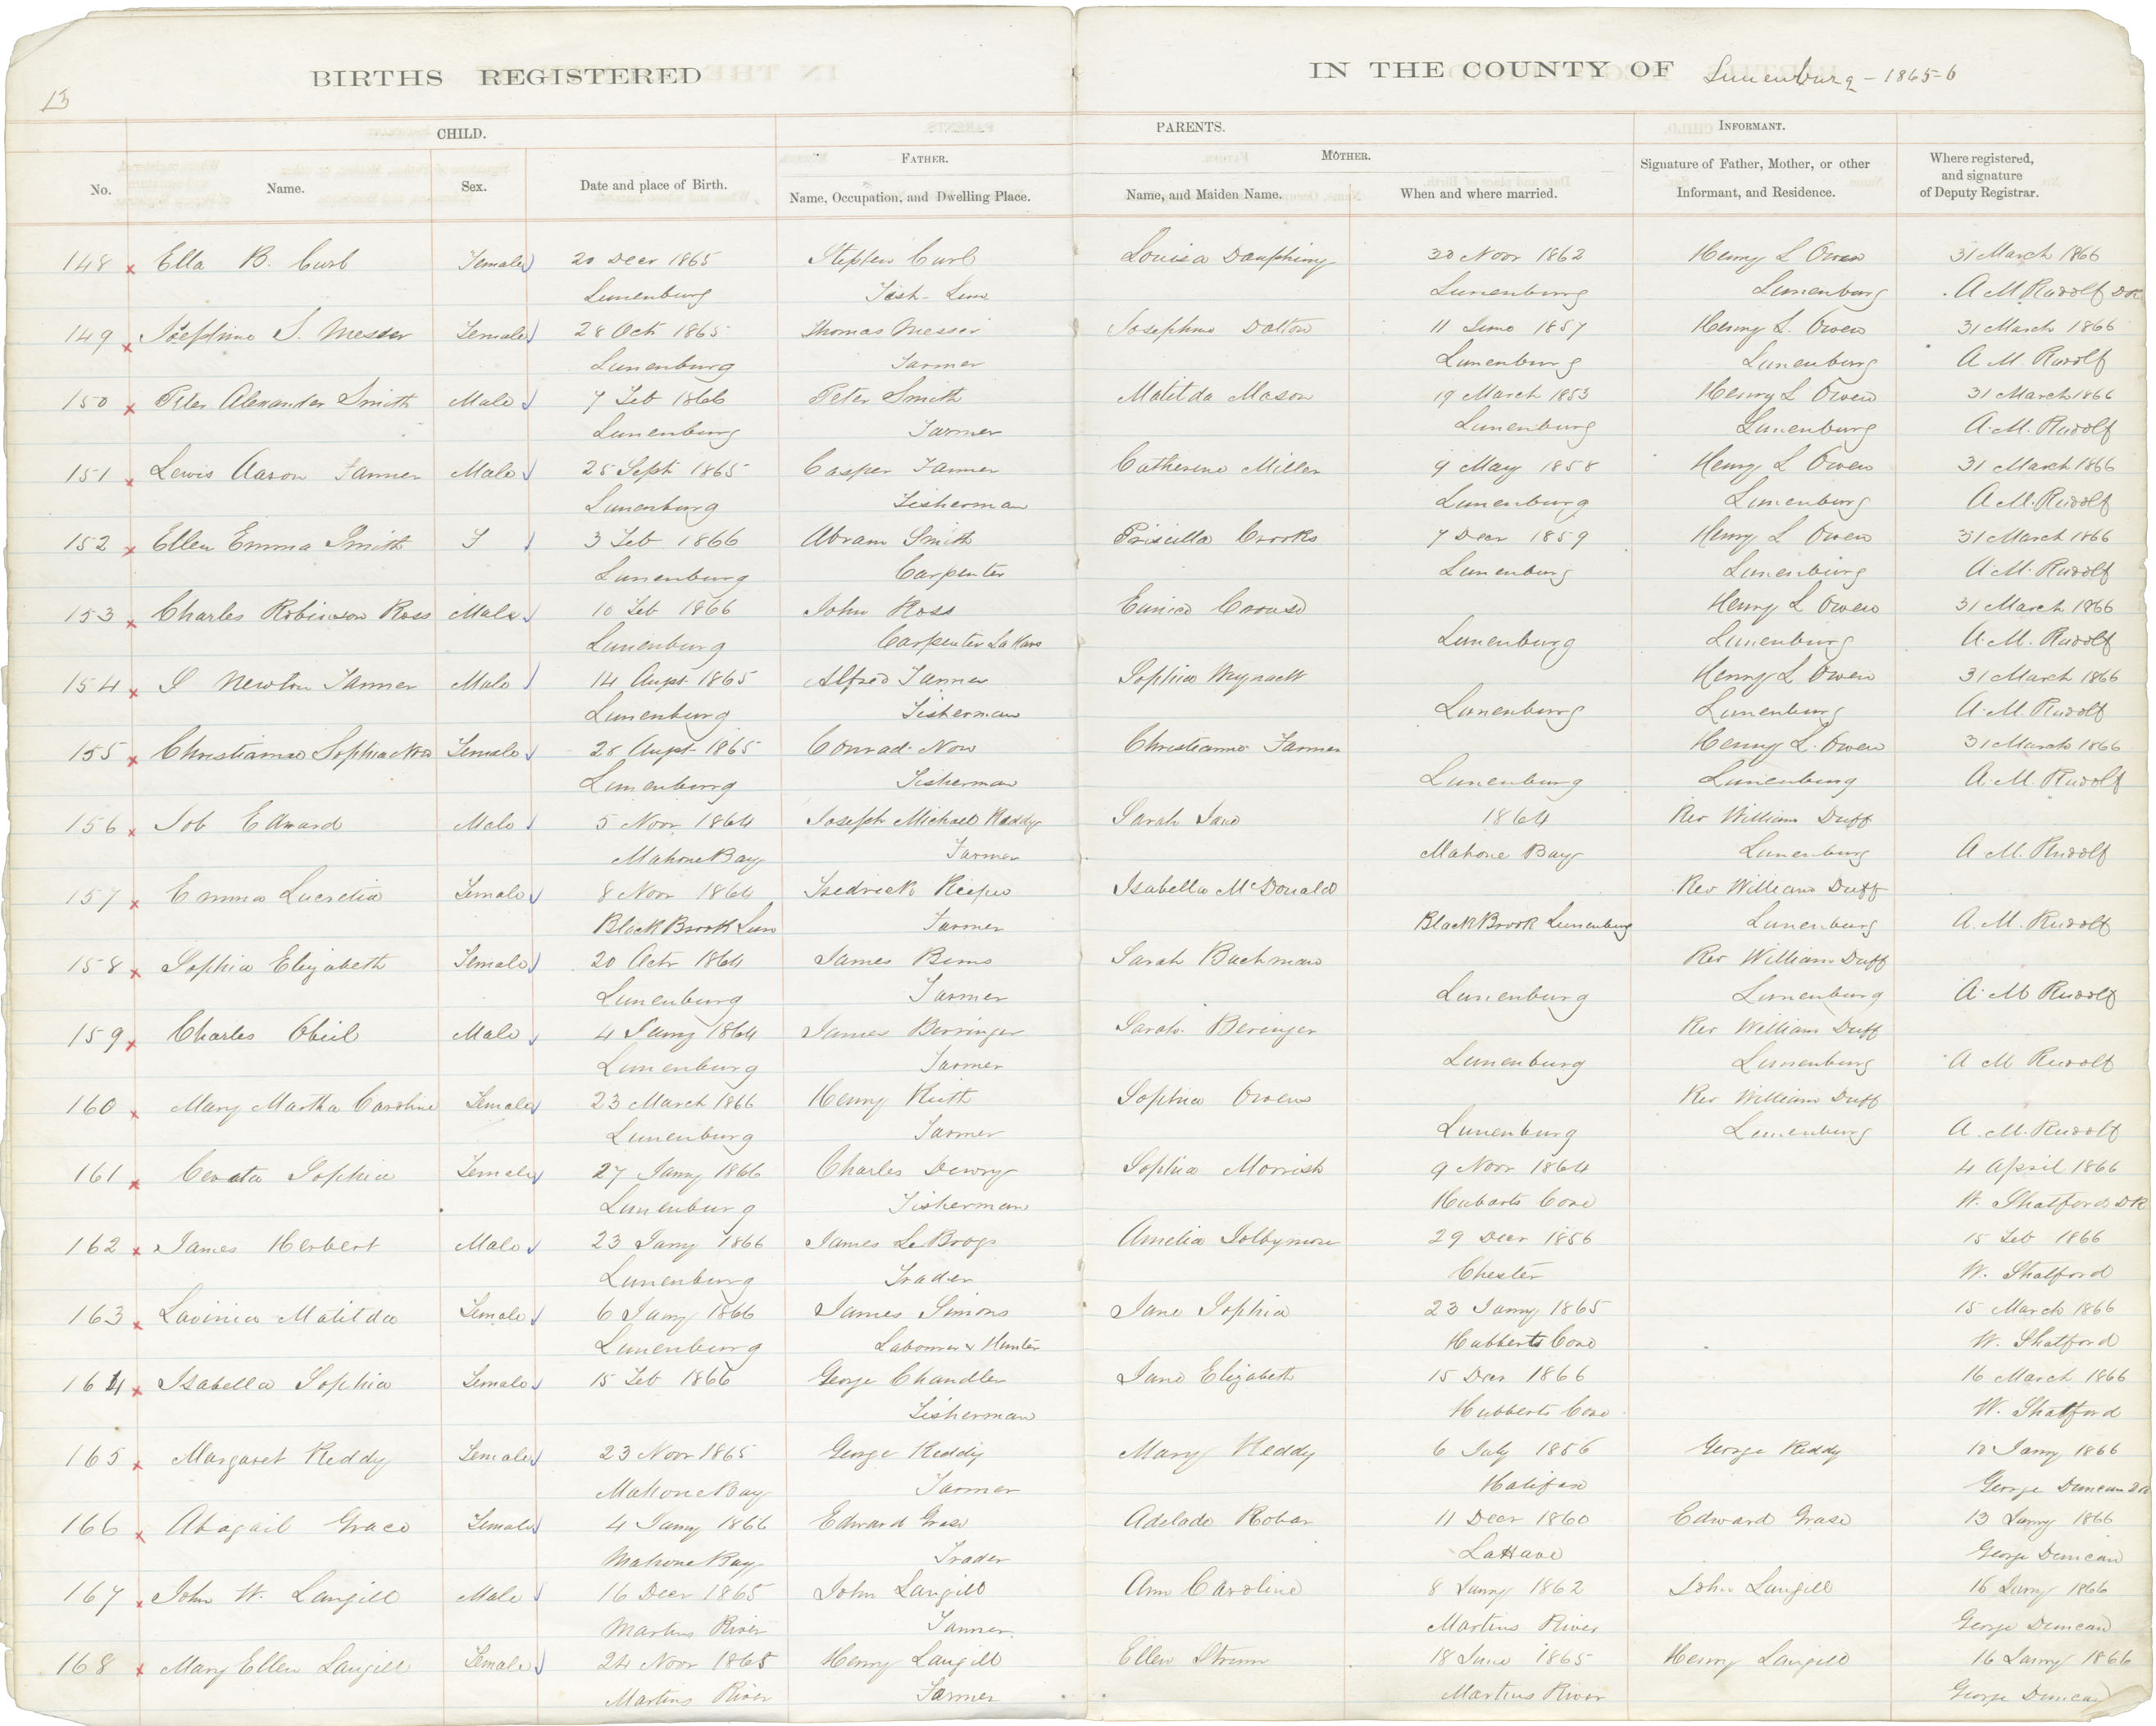 BIRTHS REGISTERED IN THE COUNTY OF Lunenburg - 1865-6
13
CHILD. PARENTS. INFORMANT.
FATHER. MOTHER.
No. Name. Sex. Date and place of Birth. Name, Occupation, and Dwelling Place. Name, and Maiden Name. When and where married. Signature of Father, Mother, or other Informant, and Residence. Where registered, and signature of Deputy Registrar.
148 Ella B. Curl Female 20 Decr 1865 Stephen Curl Louisa Dauphiny 30 Novr 1862 Henry L Owen 31 March 1866
Lunenburg Fish - Lun Lunenburg Lunenburg A M Rudolf DR
149 Josephine S. Messer Female 28 Oct 1865 Thomas Messer Josephine Dalton 11 June 1857 Henry L. Owen 31 March 1866
Lunenburg Farmer Lunenburg Lunenburg A M. Rudolf
150 Peter Alexander Smith Male 7 Feb 1866 Peter Smith Matilda Mason 19 March 1853 Henry L Owen 31 March 1866
Lunenburg Farmer Lunenburg Lunenburg A. M. Rudolf
151 Lewis Aaron Tanner Male 25 Sept 1865 Casper Tanner Catherine Miller 9 May 1858 Henry L Owen 31 March 1866
Lunenburg Fisherman Lunenburg Lunenburg A M. Rudolf
152 Ellen Emma Smith F 3 Feb 1866 Abram Smith Priscilla Crooks 7 Decr 1859 Henry L Owen 31 March 1866
Lunenburg Carpenter Lunenburg Lunenburg A. M. Rudolf
153 Charles Robinson Ross Male 10 Feb 1866 John Ross Eunice Henry L Owen 31 March 1866
Lunenburg Carpenter LaHave Lunenburg Lunenburg A. M. Rudolf
154 Newton Tanner Male 14 Augt 1865 Alfred Tanner Sophia Henry L Owen 31 March 1866
Lunenburg Fisherman Lunenburg Lunenburg A. M. Rudolf
155 Christianna Sophia Female 28 Augt 1865 Conrad Now Christianna Tanner Henry L. Owen 31 March 1866
Lunenburg Fisherman Lunenburg Lunenburg A. M. Rudolf
156 Job Edward Male 5 Novr 1864 Joseph Michael Keddy Sarah Jane 1864 Rev William Duff
Mahone Bay Farmer Mahone Bay Lunenburg A M. Rudolf
157 Emma Lucretia Female 8 Novr 1864 Fredrick Isabella McDonald Rev William Duff
Black Brook Lun Farmer Black Brook Lunenburg Lunenburg A. M. Rudolf
158 Sophia Elizabeth Female 20 Octr 1864 James Sarah Bachman Rev William Duff
Lunenburg Farmer Lunenburg Lunenburg A. M Rudolf
159 Charles Male 4 Jany 1864 James Berringer Sarah Beringer Rev William Duff
Lunenburg Farmer Lunenburg Lunenburg A M Rudolf
160 Mary Martha Caroline Female 23 March 1866 Henry Sophia Owens Rev William Duff
Lunenburg Farmer Lunenburg Lunenburg A. M. Rudolf
161 Sophia Female 27 Jany 1866 Charles Sophia Morrish 9 Novr 1864 4 April 1866
Lunenburg Fisherman Hubarts Cove W. Shatford DR
162 James Herbert Male 23 Jany 1866 James Amelia 29 Decr 1856 15 Feb 1866
Lunenburg Trader Chester W. Shatford
163 Lavinia Matilda Female 6 Jany 1866 James Simons Jane Sophia 23 Jany 1865 15 March 1866
Lunenburg Labourer & Hunter Hubberts Cove W. Shatford
164 Isabella Sophia Female 15 Feb 1866 George Chandler Jane Elizabeth 15 Decr 1866 16 March 1866
Fisherman Hubberts Cove W. Shatford
165 Margaret Keddy Female 23 Novr 1865 George Keddy Mary Keddy 6 July 1856 George Keddy 10 Jany 1866
Mahone Bay Farmer Halifax George Duncan DR
166 Abagail Grace Female 4 Jany 1866 Edward Grace Adelade Robar 11 Decr 1860 Edward Grace 13 Jany 1866
Mahone Bay Trader LaHave George Duncan
167 John W. Langill Male 16 Decr 1865 John Langill Ann Caroline 8 Jany 1862 John Langill 16 Jany 1866
Martins River Tanner. Martins River George Duncan
168 Mary Ellen Langill Female 24 Novr 1865 Henry Langill Ellen Strum 18 June 1865 Henry Langill 16 Jany 1866
Martins River Farmer Martins River George Duncan